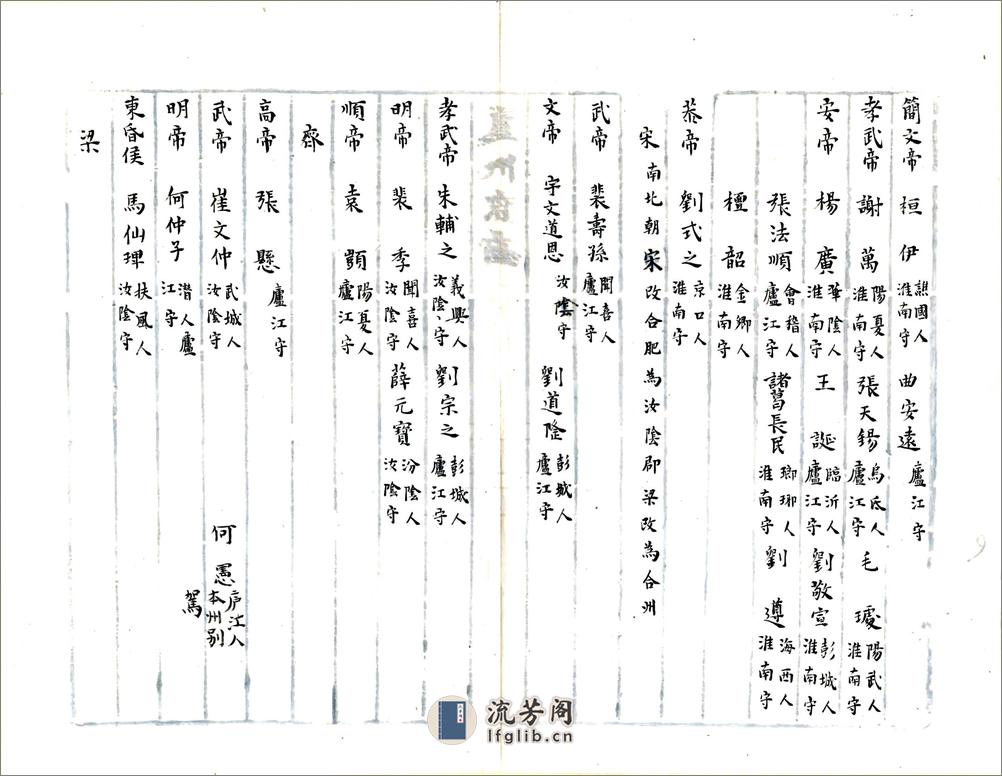 簡文帝 桓伊 譙國人淮南守 曲安遠 廬江守
孝武帝 謝萬 陽夏人淮南守 張天錫 烏氐人廬江守 毛璩 陽武人淮南守
安帝 楊廣 華陰人淮南守 王誕 臨沂人廬江守 劉敬宣 彭城人淮南守
張法順 會稽人廬江守 諸葛長民 瑯琊人淮南守 劉遵 海西人淮南守
檀韶 金鄉人淮南守
恭帝 劉式之 京口人淮南守
宋 南北朝宋改合肥為汝陰郡梁改為合州
武帝 裴壽孫 聞喜人廬江守
文帝 宇文道恩 汝陰守 劉道隆 彭城人廬江守
孝武帝 朱輔之 義興人汝陰守 劉宗之 彭城人廬江守
明帝 裴季 聞喜人汝陰守 薛元寶 汾陰人汝陰守
順帝 袁顗 陽夏人廬江守
齊
高帝 張懸 廬江守
武帝 崔文仲 武城人汝陰守 何憲 庐江人本州别駕
明帝 何仲子 潜人廬江守
東昏侯 馬仙琕 扶風人汝陰守
梁
流芳阁
lfglib.cn